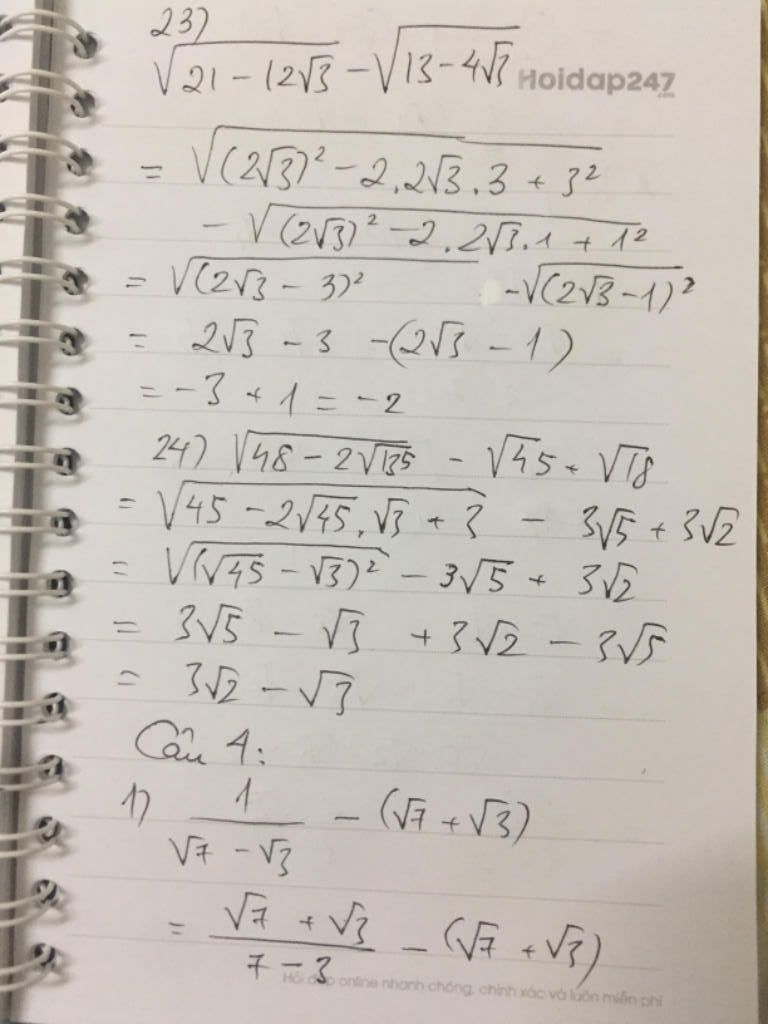 23)
√(21 - 12√3) - √(13 - 4√3)
Hoidap247
.com
= √((2√3)² - 2.2√3.3 + 3²)
- √((2√3)² - 2.2√3.1 + 1²)
= √((2√3 - 3)²) - √((2√3 - 1)²)
= 2√3 - 3 - (2√3 - 1)
= -3 + 1 = -2
24) √(48 - 2√135) - √45 + √18
= √(45 - 2√45.√3 + 3) - 3√5 + 3√2
= √((√45 - √3)²) - 3√5 + 3√2
= 3√5 - √3 + 3√2 - 3√5
= 3√2 - √3
Câu 4:
1) 1/(√7 - √3) - (√7 + √3)
= (√7 + √3)/(7 - 3) - (√7 + √3)
Hỏi đáp online nhanh chóng, chính xác và luôn miễn phí